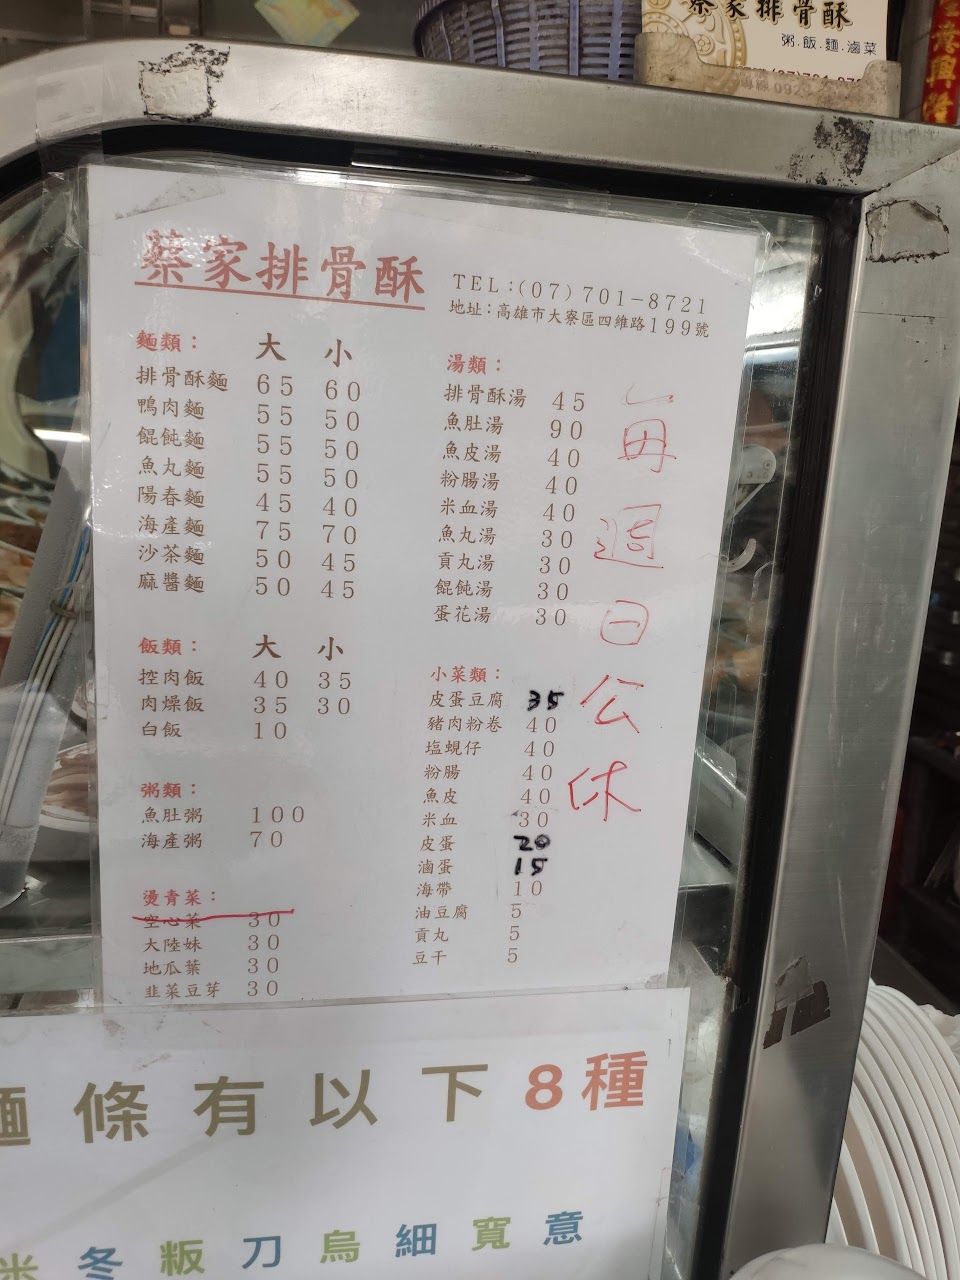 蔡家排骨酥
粥.飯.麵.滷菜
蔡家排骨酥
TEL:(07)701-8721
地址:高雄市大寮區四維路199號
麵類: 大 小
排骨酥麵 65 60
鴨肉麵 55 50
餛飩麵 55 50
魚丸麵 55 50
陽春麵 45 40
海產麵 75 70
沙茶麵 50 45
麻醬麵 50 45
飯類: 大 小
控肉飯 40 35
肉燥飯 35 30
白飯 10
粥類:
魚肚粥 100
海產粥 70
燙青菜:
空心菜 30
大陸妹 30
地瓜葉 30
韭菜豆芽 30
湯類:
排骨酥湯 45
魚肚湯 90
魚皮湯 40
粉腸湯 40
米血湯 40
魚丸湯 30
貢丸湯 30
餛飩湯 30
蛋花湯 30
小菜類:
皮蛋豆腐 35
豬肉粉卷 40
塩蜆仔 40
粉腸 40
魚皮 40
米血 30
皮蛋 20
滷蛋 15
海帶 10
油豆腐 5
貢丸 5
豆干 5
每週日公休
麵條有以下8種
米冬粄刀烏細寬意